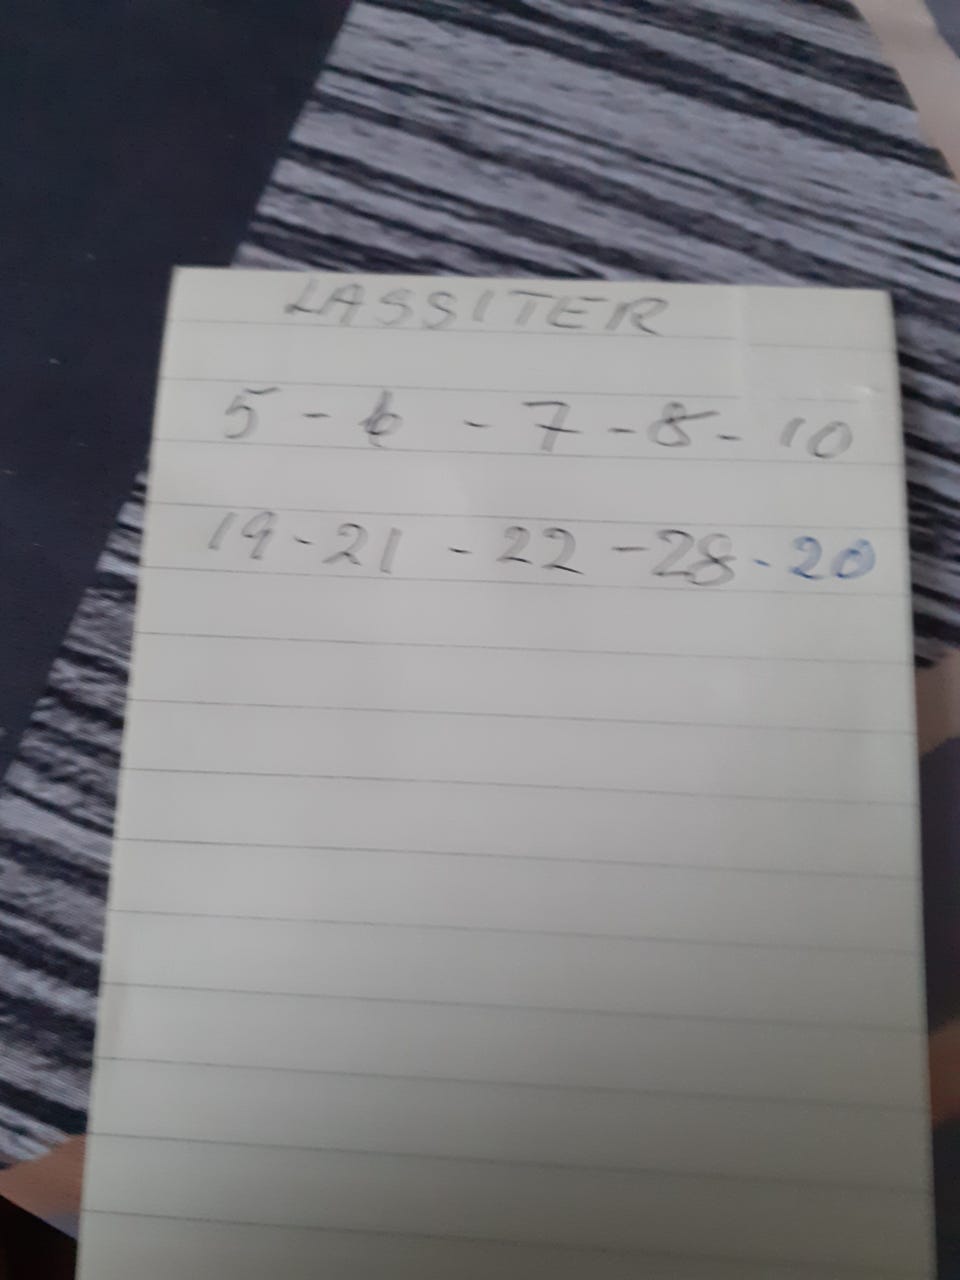 LASSITER
5 - 6 - 7 - 8 - 10
19 - 21 - 22 - 28 - 20